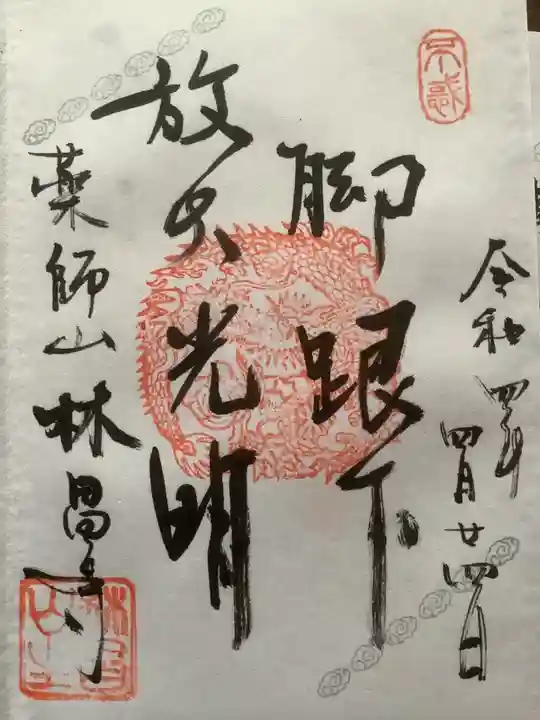 不惑
令和四年
四月廿四日
脚跟下
放大光明
薬師山林昌寺